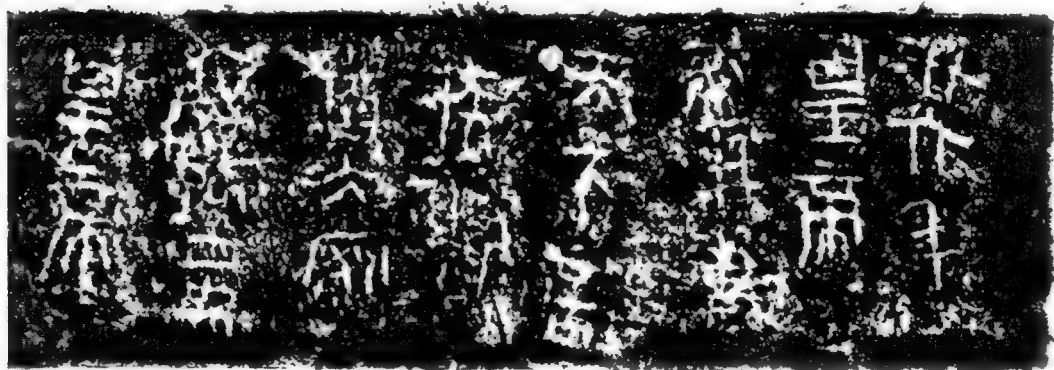 廿六年
皇帝
盡并兼
天下諸
侯黔
首大安
立號為
皇帝